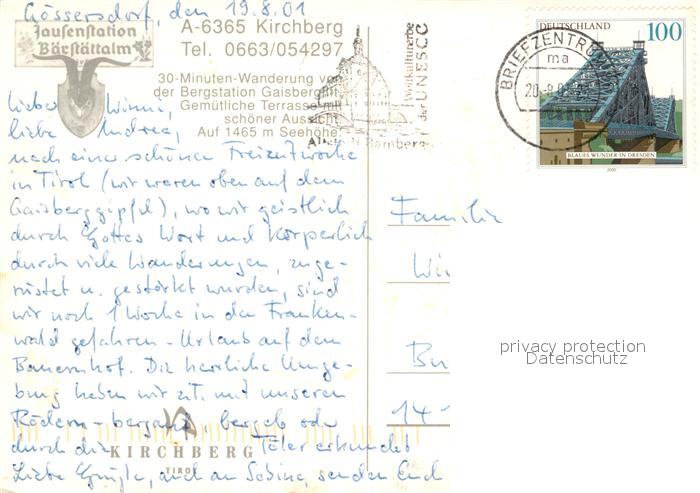 Gössersdorf, den 19.8.01
Jausenstation
Bärstättalm
A-6365 Kirchberg
Tel. 0663/054297
30-Minuten-Wanderung von
der Bergstation Gaisberglift
Gemütliche Terrasse mit
schöner Aussicht
Auf 1465 m Seehöhe
Weltkulturerbe
der UNESCO
Altstadt Bamberg
BRIEFZENTRUM
ma
DEUTSCHLAND
100
BLAUES WUNDER IN DRESDEN
2000
Lieber Winni,
liebe Andrea,
nach einer schönen Freizeitwoche
in Tirol (wir waren oben auf dem
Gaisberggipfel), wo wir geistlich
durch Gottes Wort und körperlich
durch viele Wanderungen, zuge-
rüstet u. gestärkt wurden, sind
wir noch 1 Woche in den Franken-
wald gefahren - Urlaub auf dem
Bauernhof. Die herrliche Umge-
bung haben wir z.T. mit unseren
Rädern - bergauf, bergab oder
durch die Täler erkundet
Liebe Grüße, auch an Sabine, senden Euch
KIRCHBERG
TIROL
Familie
Wi
Bu
14 1
privacy protection
Datenschutz